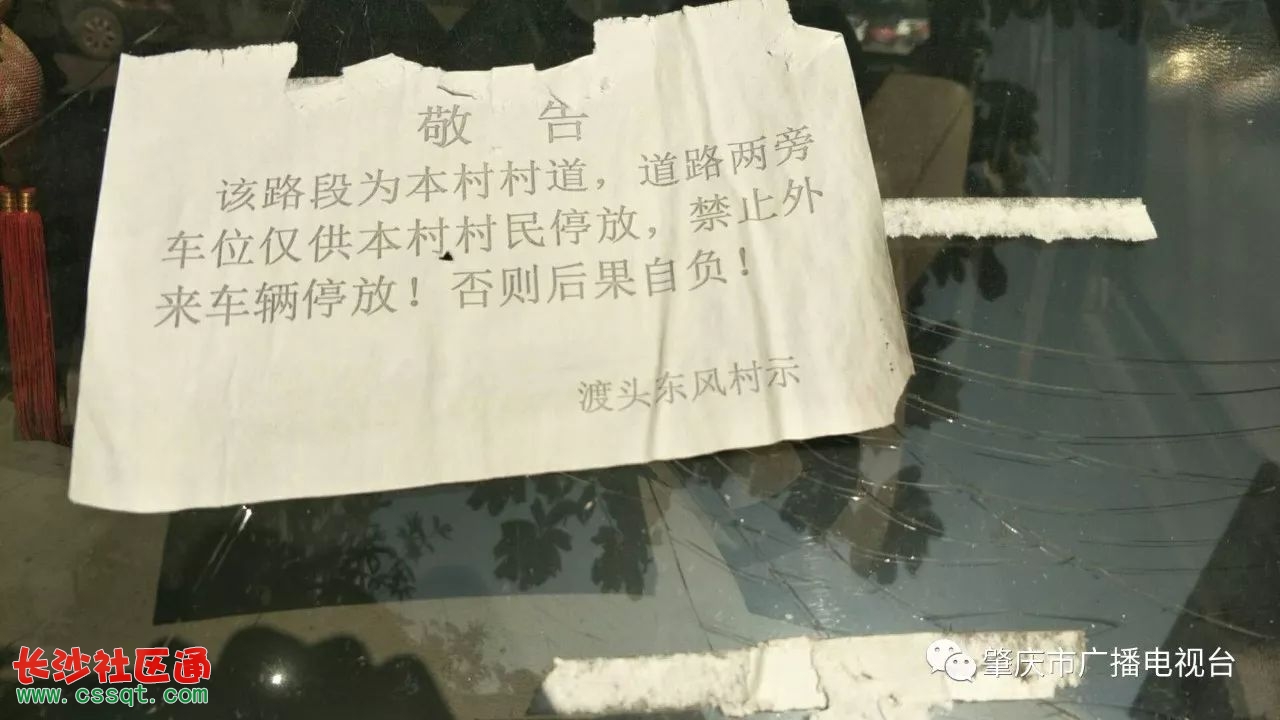 敬 告
该路段为本村村道，道路两旁
车位仅供本村村民停放，禁止外
来车辆停放！否则后果自负！
渡头东风村示
长沙社区通
www.cssqt.com
肇庆市广播电视台